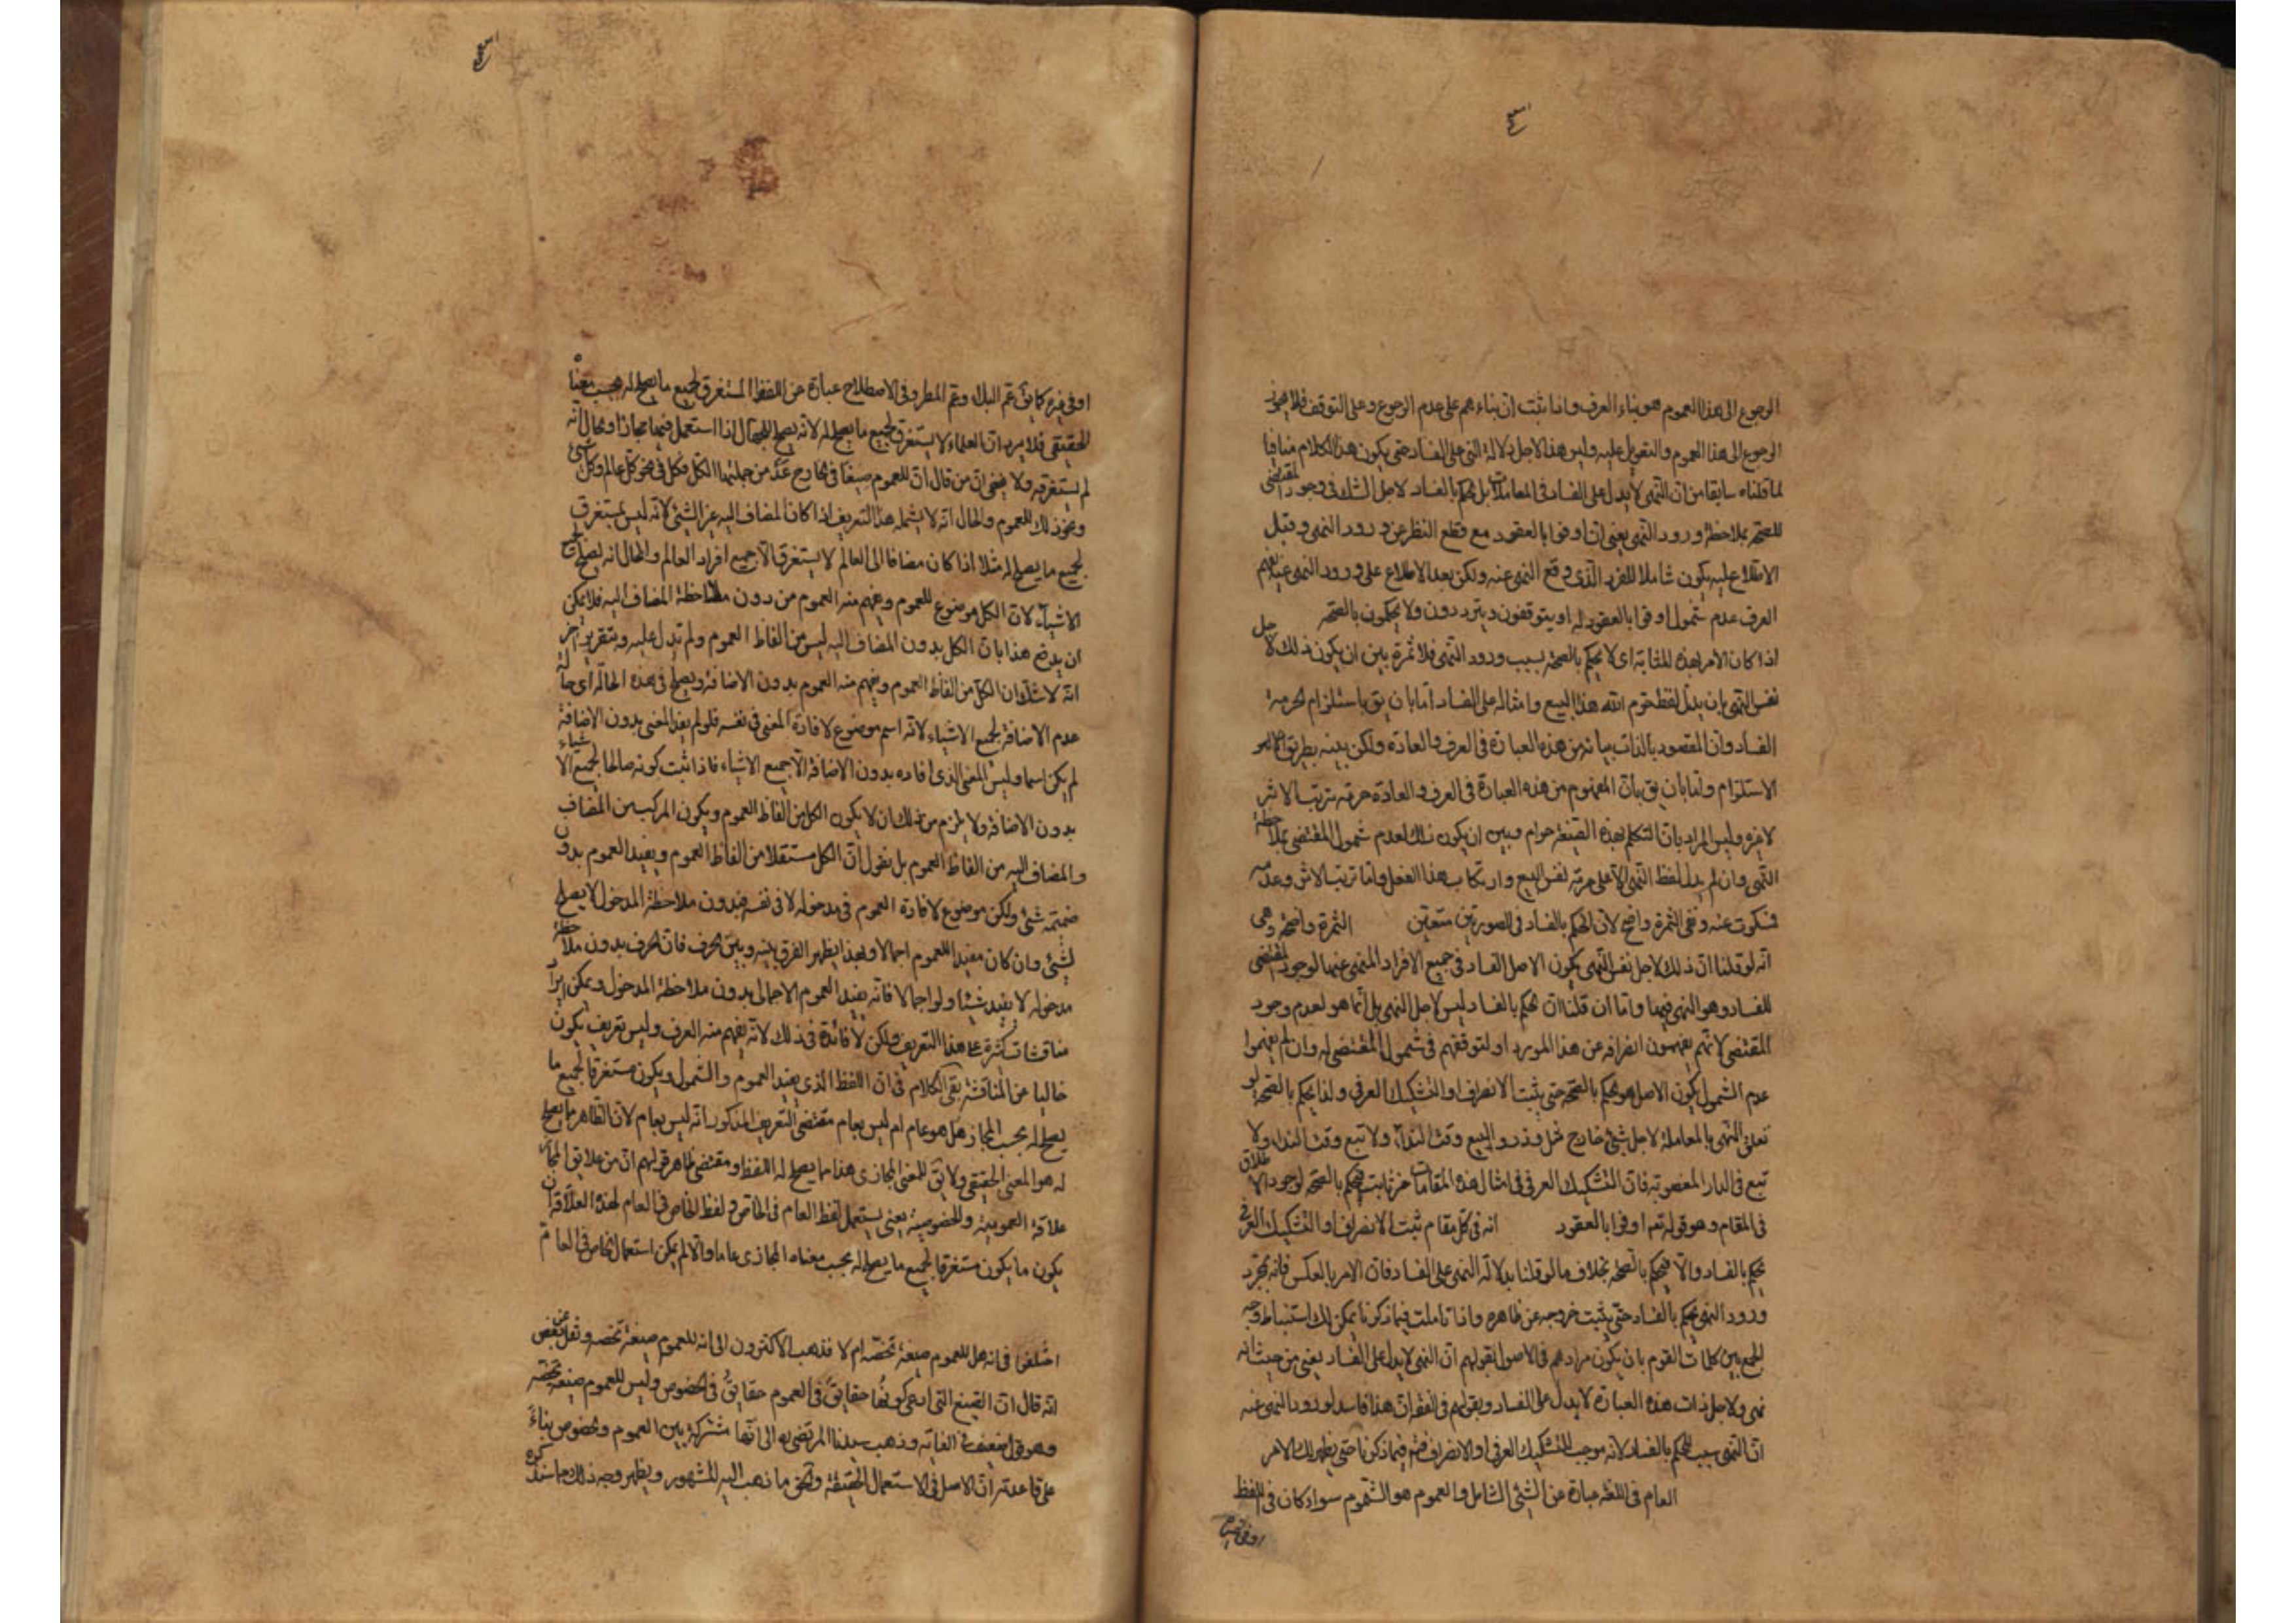 الرجوع الى هذا العموم هو بناء العرف واذا ثبت ان بناءهم على عدم الرجوع وعلى التوقف فلا يجوز
الرجوع الى هذا العموم والتعويل عليه وليس هذا لاجل دلالة النهى على الفساد حتى يكون هذا الكلام منافيا
لما قلناه سابقا من ان النهى لا يدل على الفساد فى المعاملات بل يحكم بالفساد لاجل الشك فى وجود المقتضى
للصحة بملاحظة ورود النهى يعنى ان اوفوا بالعقود مع قطع النظر عن ورود النهى وقبل
الاطلاع عليه يكون شاملا للفرد الذى وقع النهى عنه ولكن بعد الاطلاع على ورود النهى عنه يفهم
العرف عدم شمول اوفوا بالعقود له او يتوقفون ويترددون ولا يحكمون بالصحة
اذا كان الامر بهذه المثابة اى لا يحكم بالصحة بسبب ورود النهى فلا ثمرة بين ان يكون ذلك لاجل
نفس النهى بان يدل لفظ حرم الله هذا البيع وامثاله على الفساد اما بان يق باستلزام الحرمة
الفساد وان المقصود بالذات بيانه من هذه العبارة فى العرف والعادة ولكن بينه بطريق
الاستلزام واما بان يق بان المفهوم من هذه العبارة فى العرف والعادة حرمة ترتب الاثر
لا غيره وليس المراد بان التكلم بهذه الصيغة حرام وبين ان يكون ذلك لعدم شمول المقتضى بملاحظة
النهى وان لم يدل لفظ النهى الا على حرمة نفس البيع وارتكاب هذا الفعل واما ترتب الاثر وعدمه
فسكوت عنه ونفى الثمرة واضح لان الحكم بالفساد فى الصورتين متعين الثمرة واضحة وهى
انه لو قلنا ان ذلك لاجل نفس النهى يكون الاصل الفساد فى جميع الافراد المنهى عنها لوجود المقتضى
للفساد وهو النهى فيها واما ان قلنا ان الحكم بالفساد ليس لاجل النهى بل انما هو لعدم وجود
المقتضى لانهم يفهمون انصرافه عن هذا المورد او لتوقفهم فى شمول المقتضى له وان لم يفهموا
عدم الشمول يكون الاصل هو الحكم بالصحة حتى يثبت الانصراف او التشكيك العرفى ولذا يحكم بالصحة لو
تعلق النهى بالمعاملة لاجل شئ خارج مثل وذروا البيع وقت النداء ولا تبع وقت النداء ولا
تبع فى الدار المغصوبة فان التشكيك العرفى فى امثال هذه المقامات غير ثابت فيحكم بالصحة لوجود الاطلاق
فى المقام وهو قوله تع اوفوا بالعقود انه فى كل مقام ثبت الانصراف او التشكيك العرفى
يحكم بالفساد والا فيحكم بالصحة بخلاف ما لو قلنا بدلالة النهى على الفساد فان الامر بالعكس فانه بمجرد
ورود النهى يحكم بالفساد حتى يثبت خروجه عن ظاهره واذا تاملت فيما ذكرنا يمكن لك استنباط وجه
الجمع بين كلمات القوم بان يكون مرادهم فى الاصول بقولهم ان النهى لا يدل على الفساد يعنى من حيث انه
نهى ولاجل ذات هذه العبارة لا يدل على الفساد وبقولهم فى الفقه ان هذا فاسد لورود النهى عنه
ان النهى سبب للحكم بالفساد لانه موجب للتشكيك العرفى او الانصراف فيما ذكرنا حتى يظهر لك الامر
العام فى اللغة عبارة عن الشئ الشامل والعموم هو الشمول سواء كان فى اللفظ
او فى غيره
او فى غيره كما يق عم البلاء وعم المطر وفى الاصطلاح عبارة عن اللفظ المستغرق لجميع ما يصلح له بحسب معناه
الحقيقى فلا يرد ان العلماء لا يستغرق لجميع ما يصلح له لانه يصلح للجهال اذا استعمل فيها مجازا والحال انه
لم يستغرقه ولا يخفى ان من قال ان للعموم صيغا فى الخارج عد من جملتها الكل فكل فى نحو كل عالم وكل شئ
ونحو ذلك للعموم والحال انه لا يشمله هذا التعريف اذا كان المضاف اليه غير الشئ لانه ليس بمستغرق
لجميع ما يصلح له مثلا اذا كان مضافا الى العالم لا يستغرق الا جميع افراد العالم والحال انه يصلح لجميع
الاشياء لان الكل موضوع للعموم ويفهم منه العموم من دون ملاحظة المضاف اليه فلا يمكن
ان يدفع هذا بان الكل بدون المضاف اليه ليس من الفاظ العموم ولم تدل عليه وبتقرير اخر
انه لا شك ان الكل من الفاظ العموم ويفهم منه العموم بدون الاضافة ويصلح فى هذه الحالة اى حالة
عدم الاضافة لجميع الاشياء لانه اسم موضوع لافادة المعنى فى نفسه فلو لم يفد المعنى بدون الاضافة
لم يكن اسما وليس المعنى الذى افاده بدون الاضافة الا جميع الاشياء فاذا ثبت كونه صالحا لجميع الاشياء
بدون الاضافة ولا يلزم من ذلك ان لا يكون الكل من الفاظ العموم ويكون المركب من المضاف
والمضاف اليه من الفاظ العموم بل نقول ان الكل مستقلا من الفاظ العموم ويفيد العموم بدون
ضميمة شئ ولكن موضوع لافادة العموم فى مدخوله لا فى نفسه فبدون ملاحظة المدخول لا يصلح
لشئ وان كان مفيدا للعموم اجمالا وبهذا يظهر الفرق بينه وبين الحرف فان الحرف بدون ملاحظة
مدخوله لا يفيد شيئا ولو اجمالا فانه يفيد العموم الاجمالى بدون ملاحظة المدخول ويمكن ايراد
مناقشات كثيرة على هذا التعريف ولكن لا فائدة فى ذلك لانه يفهم منه العرف وليس تعريف يكون
خاليا عن المناقشة بقى الكلام فى ان اللفظ الذى يفيد العموم والشمول ويكون مستغرقا لجميع ما
يصلح له بحسب المجاز هل هو عام ام ليس بعام مقتضى التعريف المذكور انه ليس بعام لان الظاهر ما يصلح
له هو المعنى الحقيقى ولا يق للمعنى المجازى هذا ما يصلح له اللفظ ومقتضى ظاهر قولهم ان من علايق المجاز
علاقة العمومية والخصوصية يعنى يستعمل لفظ العام فى الخاص ولفظ الخاص فى العام لهذه العلاقة ان
يكون ما يكون مستغرقا لجميع ما يصلح له بحسب معناه المجازى عاما والا لم يكن استعمال الخاص فى العام
اختلفوا فى انه هل للعموم صيغة تخصه ام لا فذهب الاكثرون الى انه للعموم صيغة تخصه ونقل عن بعض
انه قال ان الصيغ التى ادعى كونها حقايق فى العموم حقايق فى الخصوص وليس للعموم صيغة تخصه
وهو فى الضعف فى الغاية وذهب سيدنا المرتضى ره الى انها مشتركة بين العموم والخصوص بناء
على قاعدته ان الاصل فى الاستعمال الحقيقة والحق ما ذهب اليه المشهور ويظهر وجه ذلك مما سنذكره